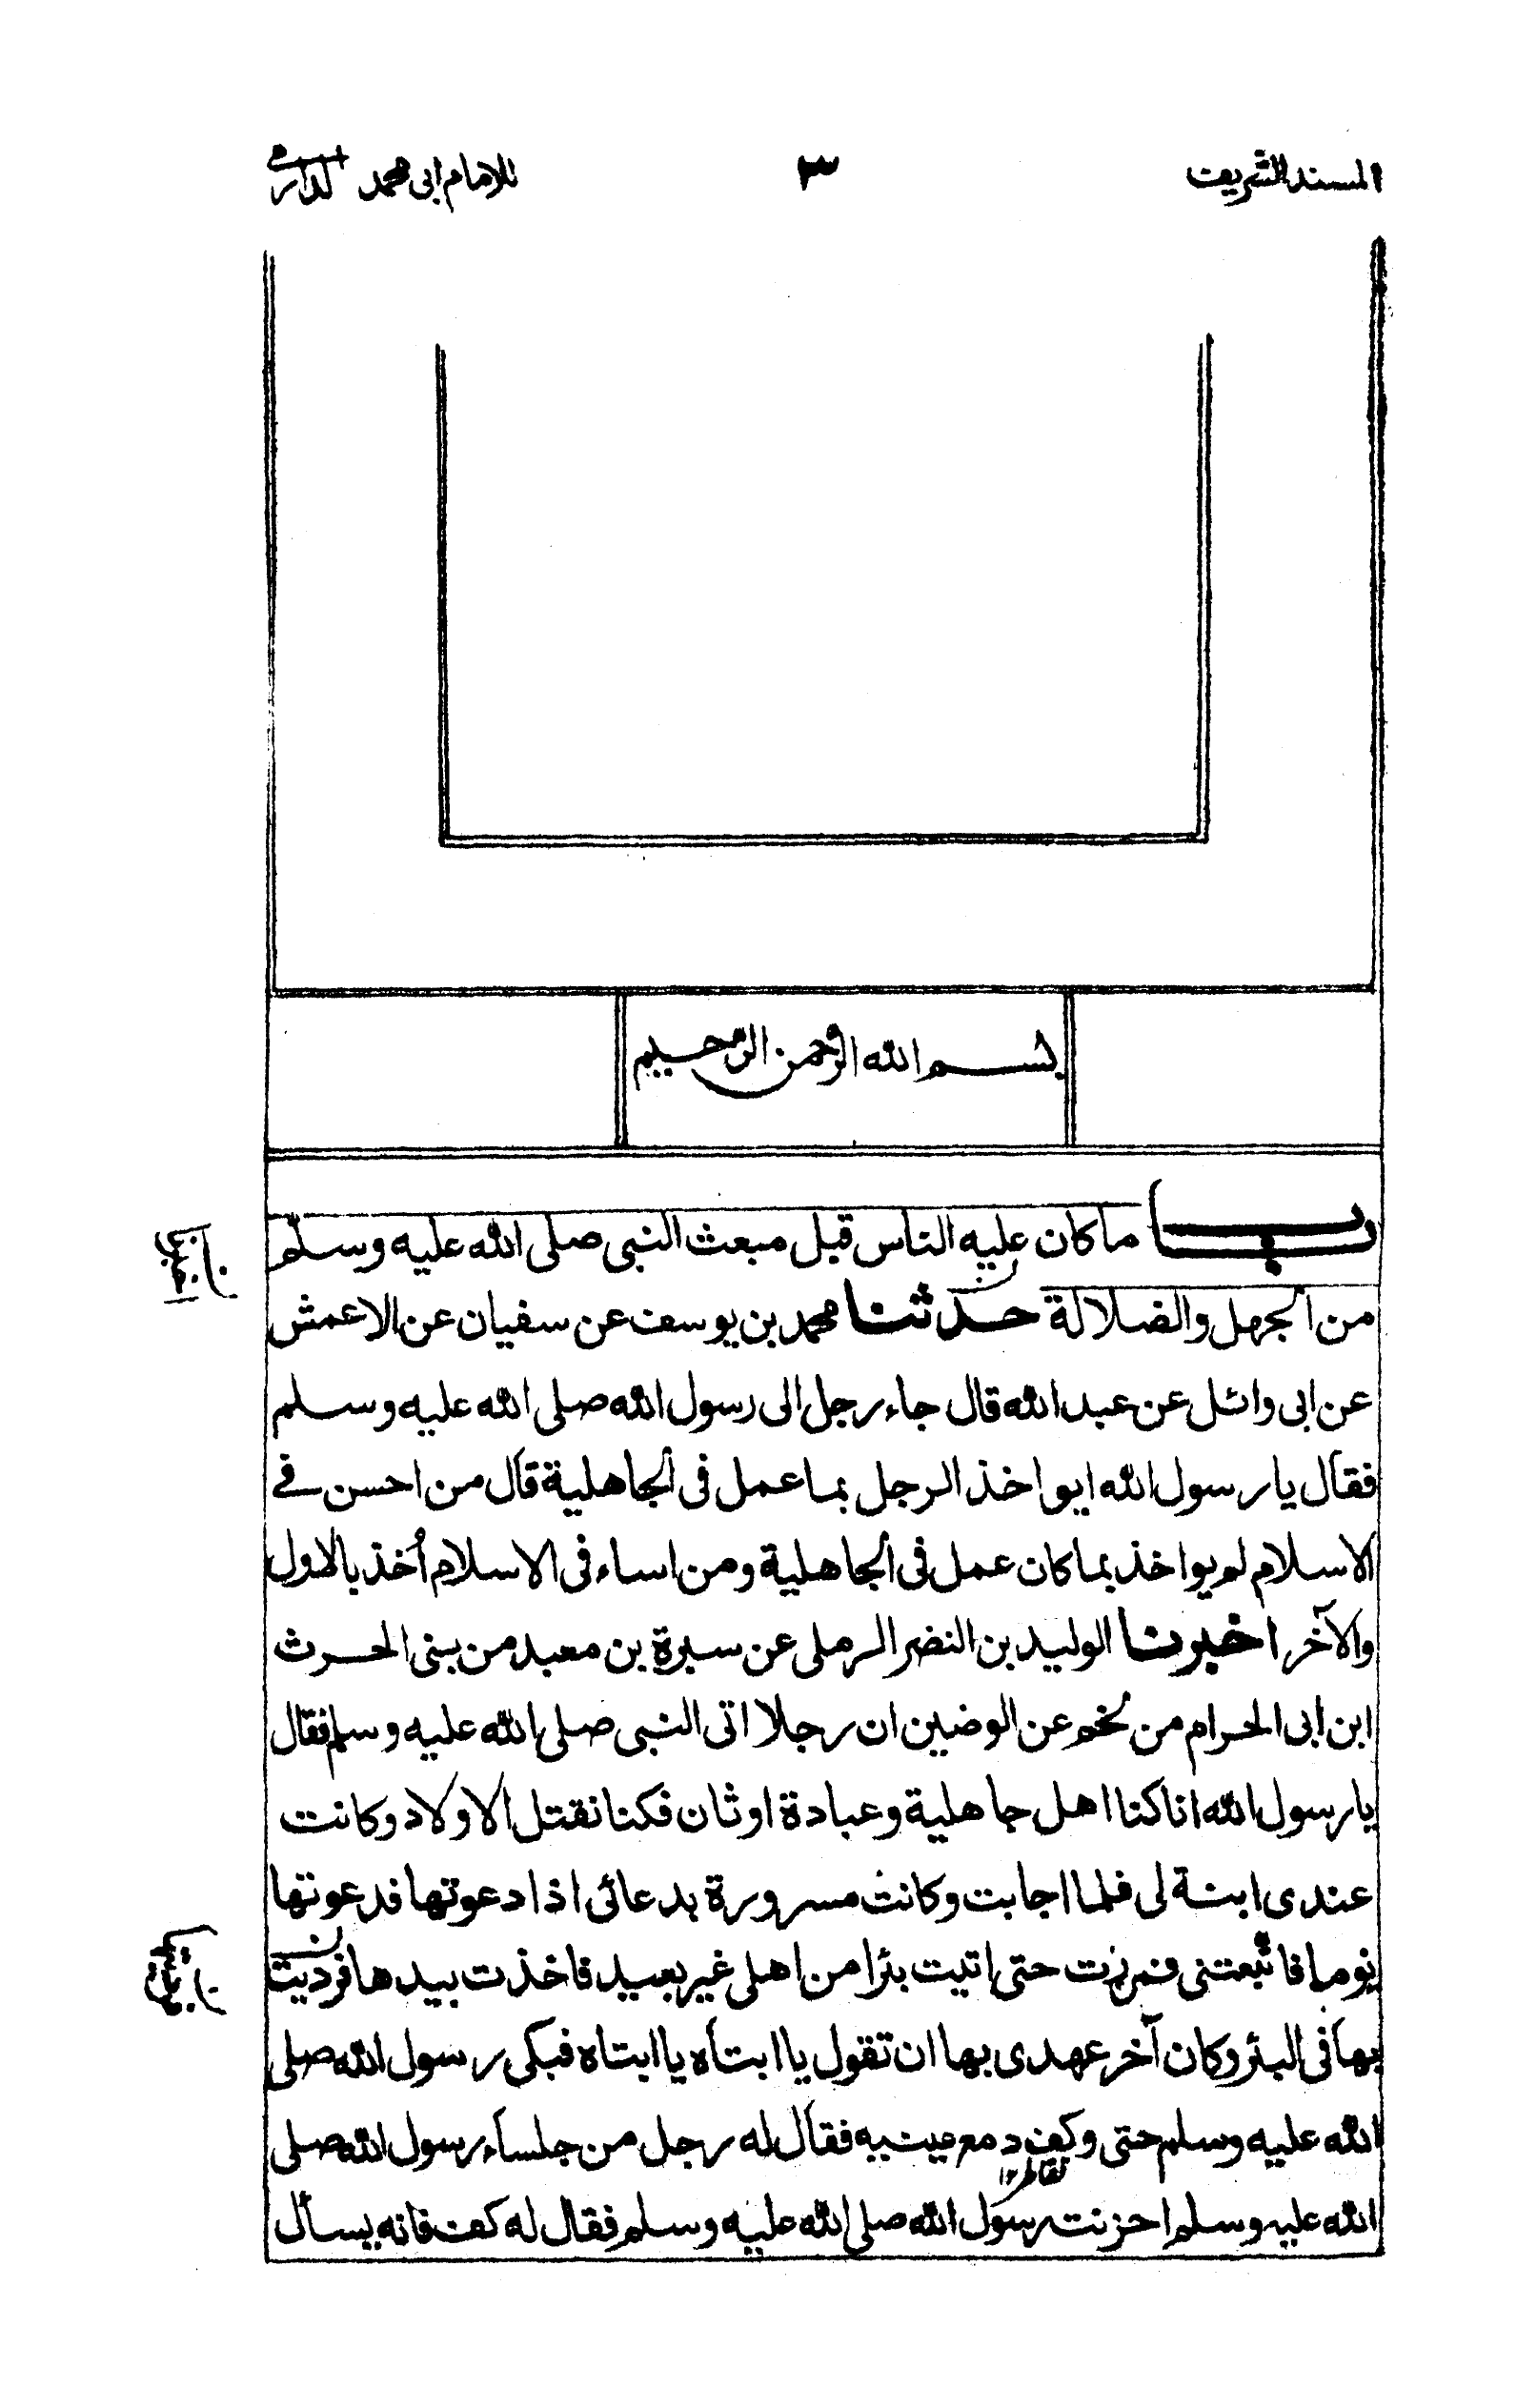 المسند الشريف ٣ للامام ابى محمد الدارمى
بسم الله الرحمن الرحيم
باب ما كان عليه الناس قبل مبعث النبى صلى الله عليه وسلم
من الجهل والضلالة حدثنا محمد بن يوسف عن سفيان عن الاعمش
عن ابى وائل عن عبد الله قال جاء رجل الى رسول الله صلى الله عليه وسلم
فقال يا رسول الله ايواخذ الرجل بما عمل فى الجاهلية قال من احسن فے
الاسلام لم يواخذ بما كان عمل فى الجاهلية ومن اساء فى الاسلام أخذ بالاول
والآخر اخبرنا الوليد بن النضر الرملى عن سبرة بن معبد من بنى الحرث
ابن ابى الحرام من لخم عن الوضين ان رجلا اتى النبى صلى الله عليه وسلم فقال
يا رسول الله انا كنا اهل جاهلية وعبادة اوثان فكنا نقتل الاولاد وكانت
عندى ابنة لى فلما اجابت وكانت مسرورة بدعائى اذا دعوتها فدعوتها
يوما فاتبعتنى فمررت حتى اتيت بئرا من اهلى غير بعيد فاخذت بيدها فرديت
بها فى البئر وكان آخر عهدى بها ان تقول يا ابتاه يا ابتاه فبكى رسول الله صلى
الله عليه وسلم حتى وكف دمع عينيه فقال له رجل من جلساء رسول الله صلى
تقاطر ١٢
الله عليه وسلم احزنت رسول الله صلى الله عليه وسلم فقال له كف فانه يسأل